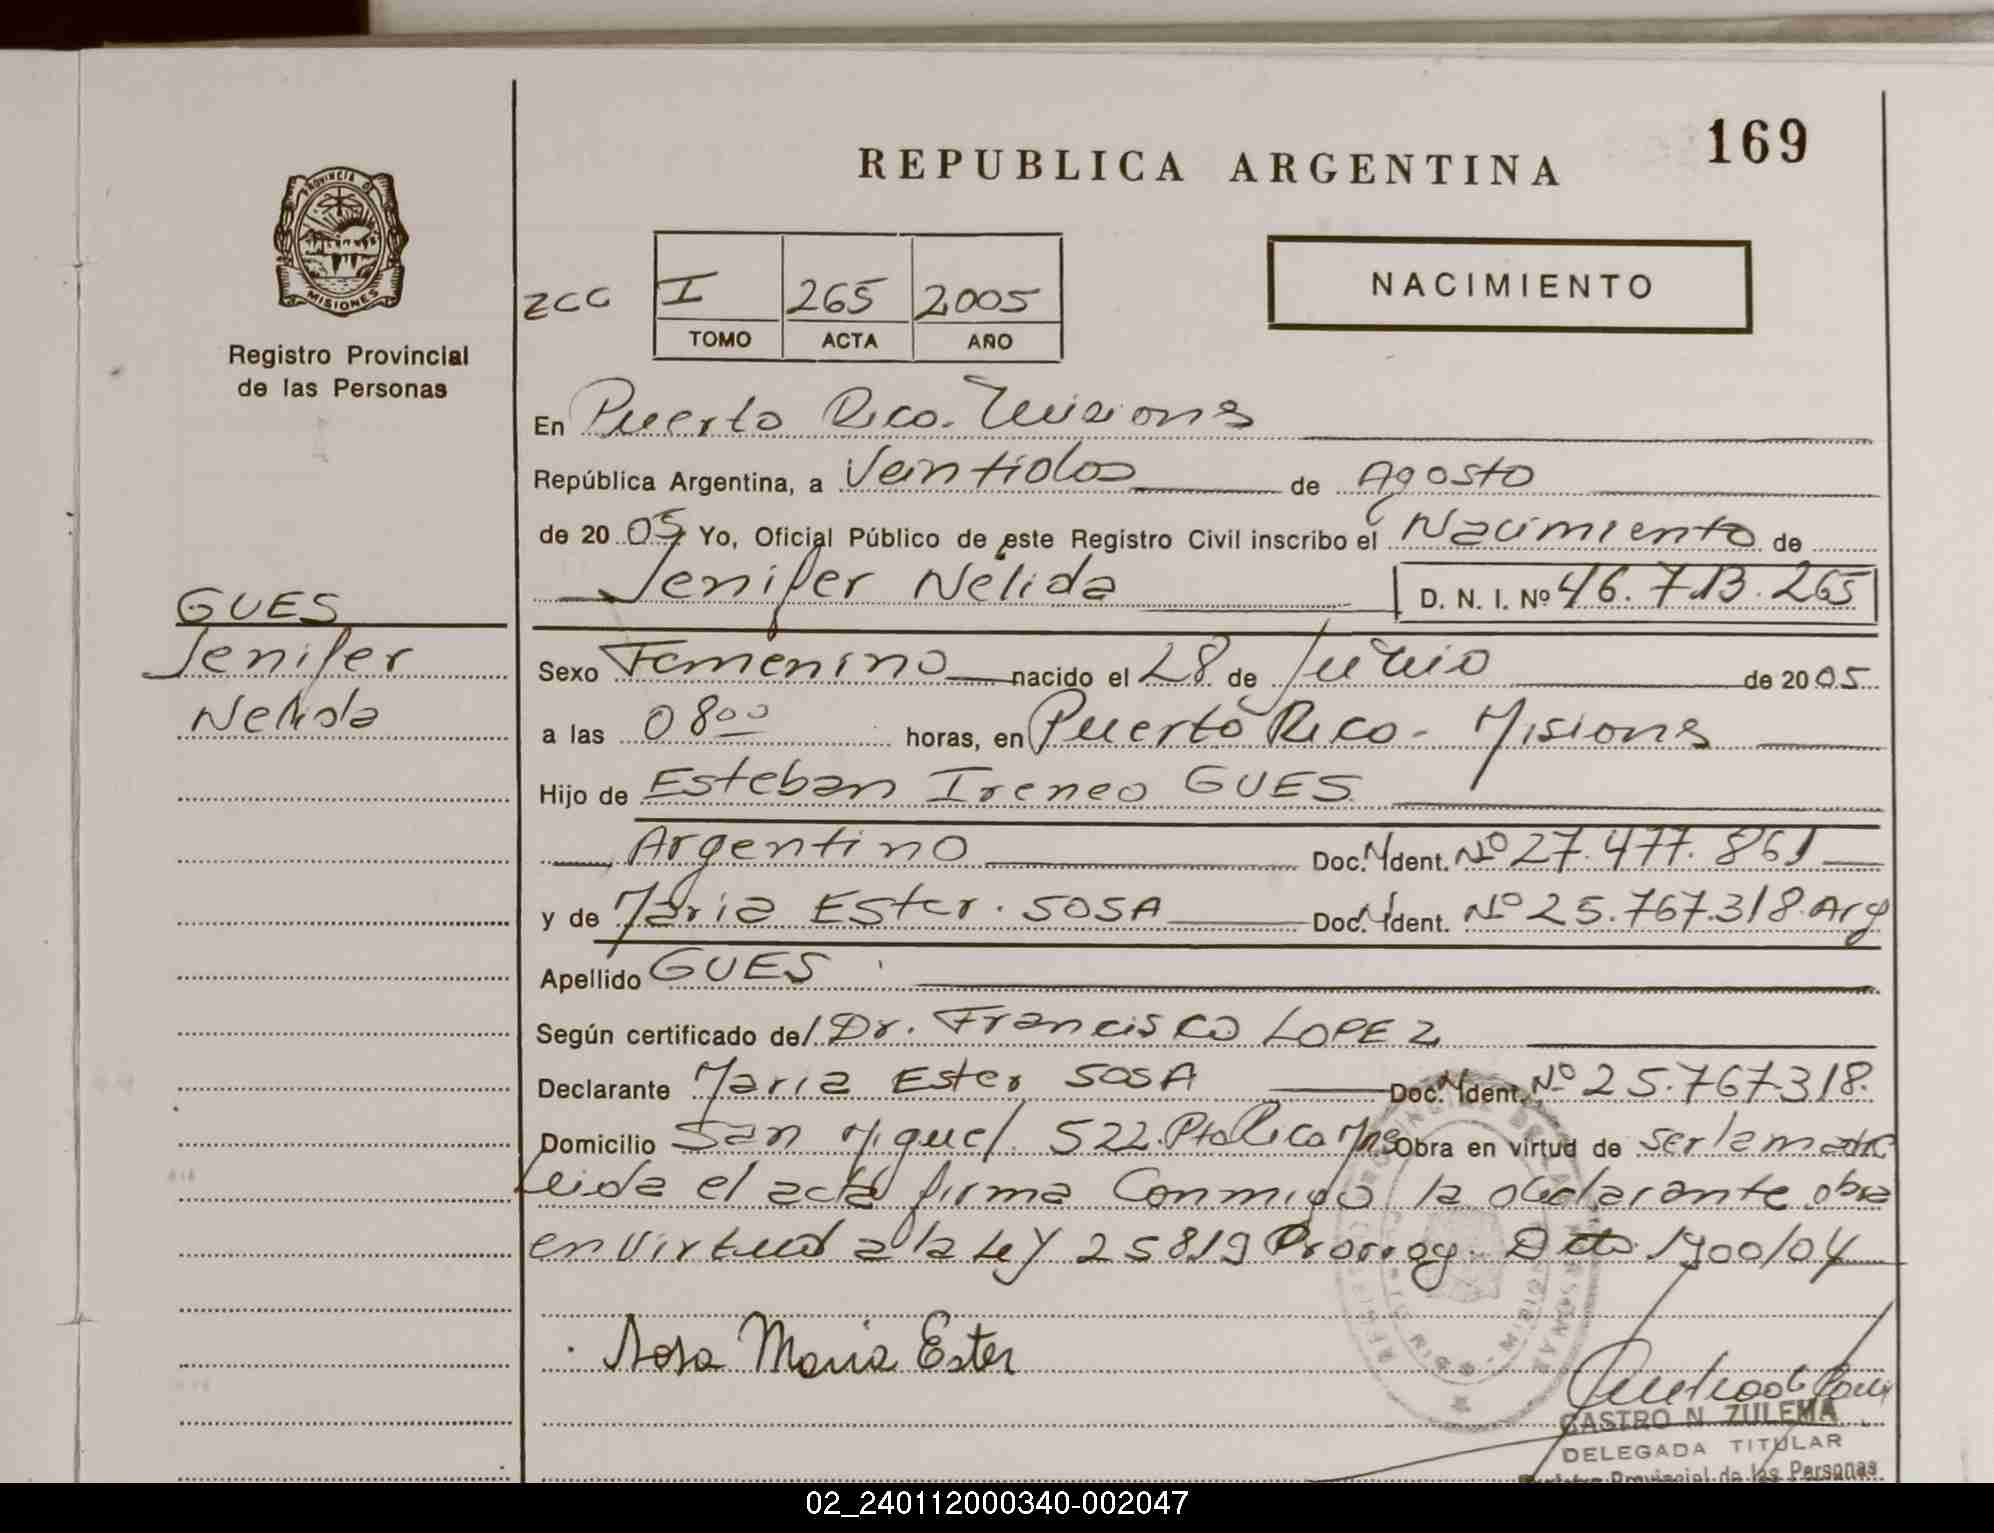 REPUBLICA ARGENTINA
169
PROVINCIA DE
MISIONES
Registro Provincial
de las Personas
ZCC
I 265 2005
TOMO ACTA AÑO
NACIMIENTO
En Puerto Rico. Misiones
República Argentina, a Veintidos de Agosto
de 2005 Yo, Oficial Público de este Registro Civil inscribo el Nacimiento de
Jenifer Nélida D. N. I. Nº 46.713.265
GUES
Jenifer
Nelida
Sexo Femenino nacido el 28 de de 2005
a las 08 00 horas, en Puerto Rico - Misiones
Hijo de Esteban Ireneo GUES
Argentino Doc. Ident. Nº 27.477.861
y de Maria Ester. SOSA Doc. Ident. Nº 25.767.318. Arg
Apellido GUES
Según certificado del Dr. Francisco LOPEZ
Declarante Maria Ester SOSA Doc. Ident. Nº 25.767.318.
Domicilio San Miguel. 522. Pto Rico Mnes Obra en virtud de ser la madre
Leida el acta firma Conmigo la declarante obra
en virtud a la Ley 25819 Prorrog. Dcto 1700/04
Sosa Maria Ester
CASTRO N. ZULEMA
DELEGADA TITULAR
Registro Provincial de las Personas
02_240112000340-002047